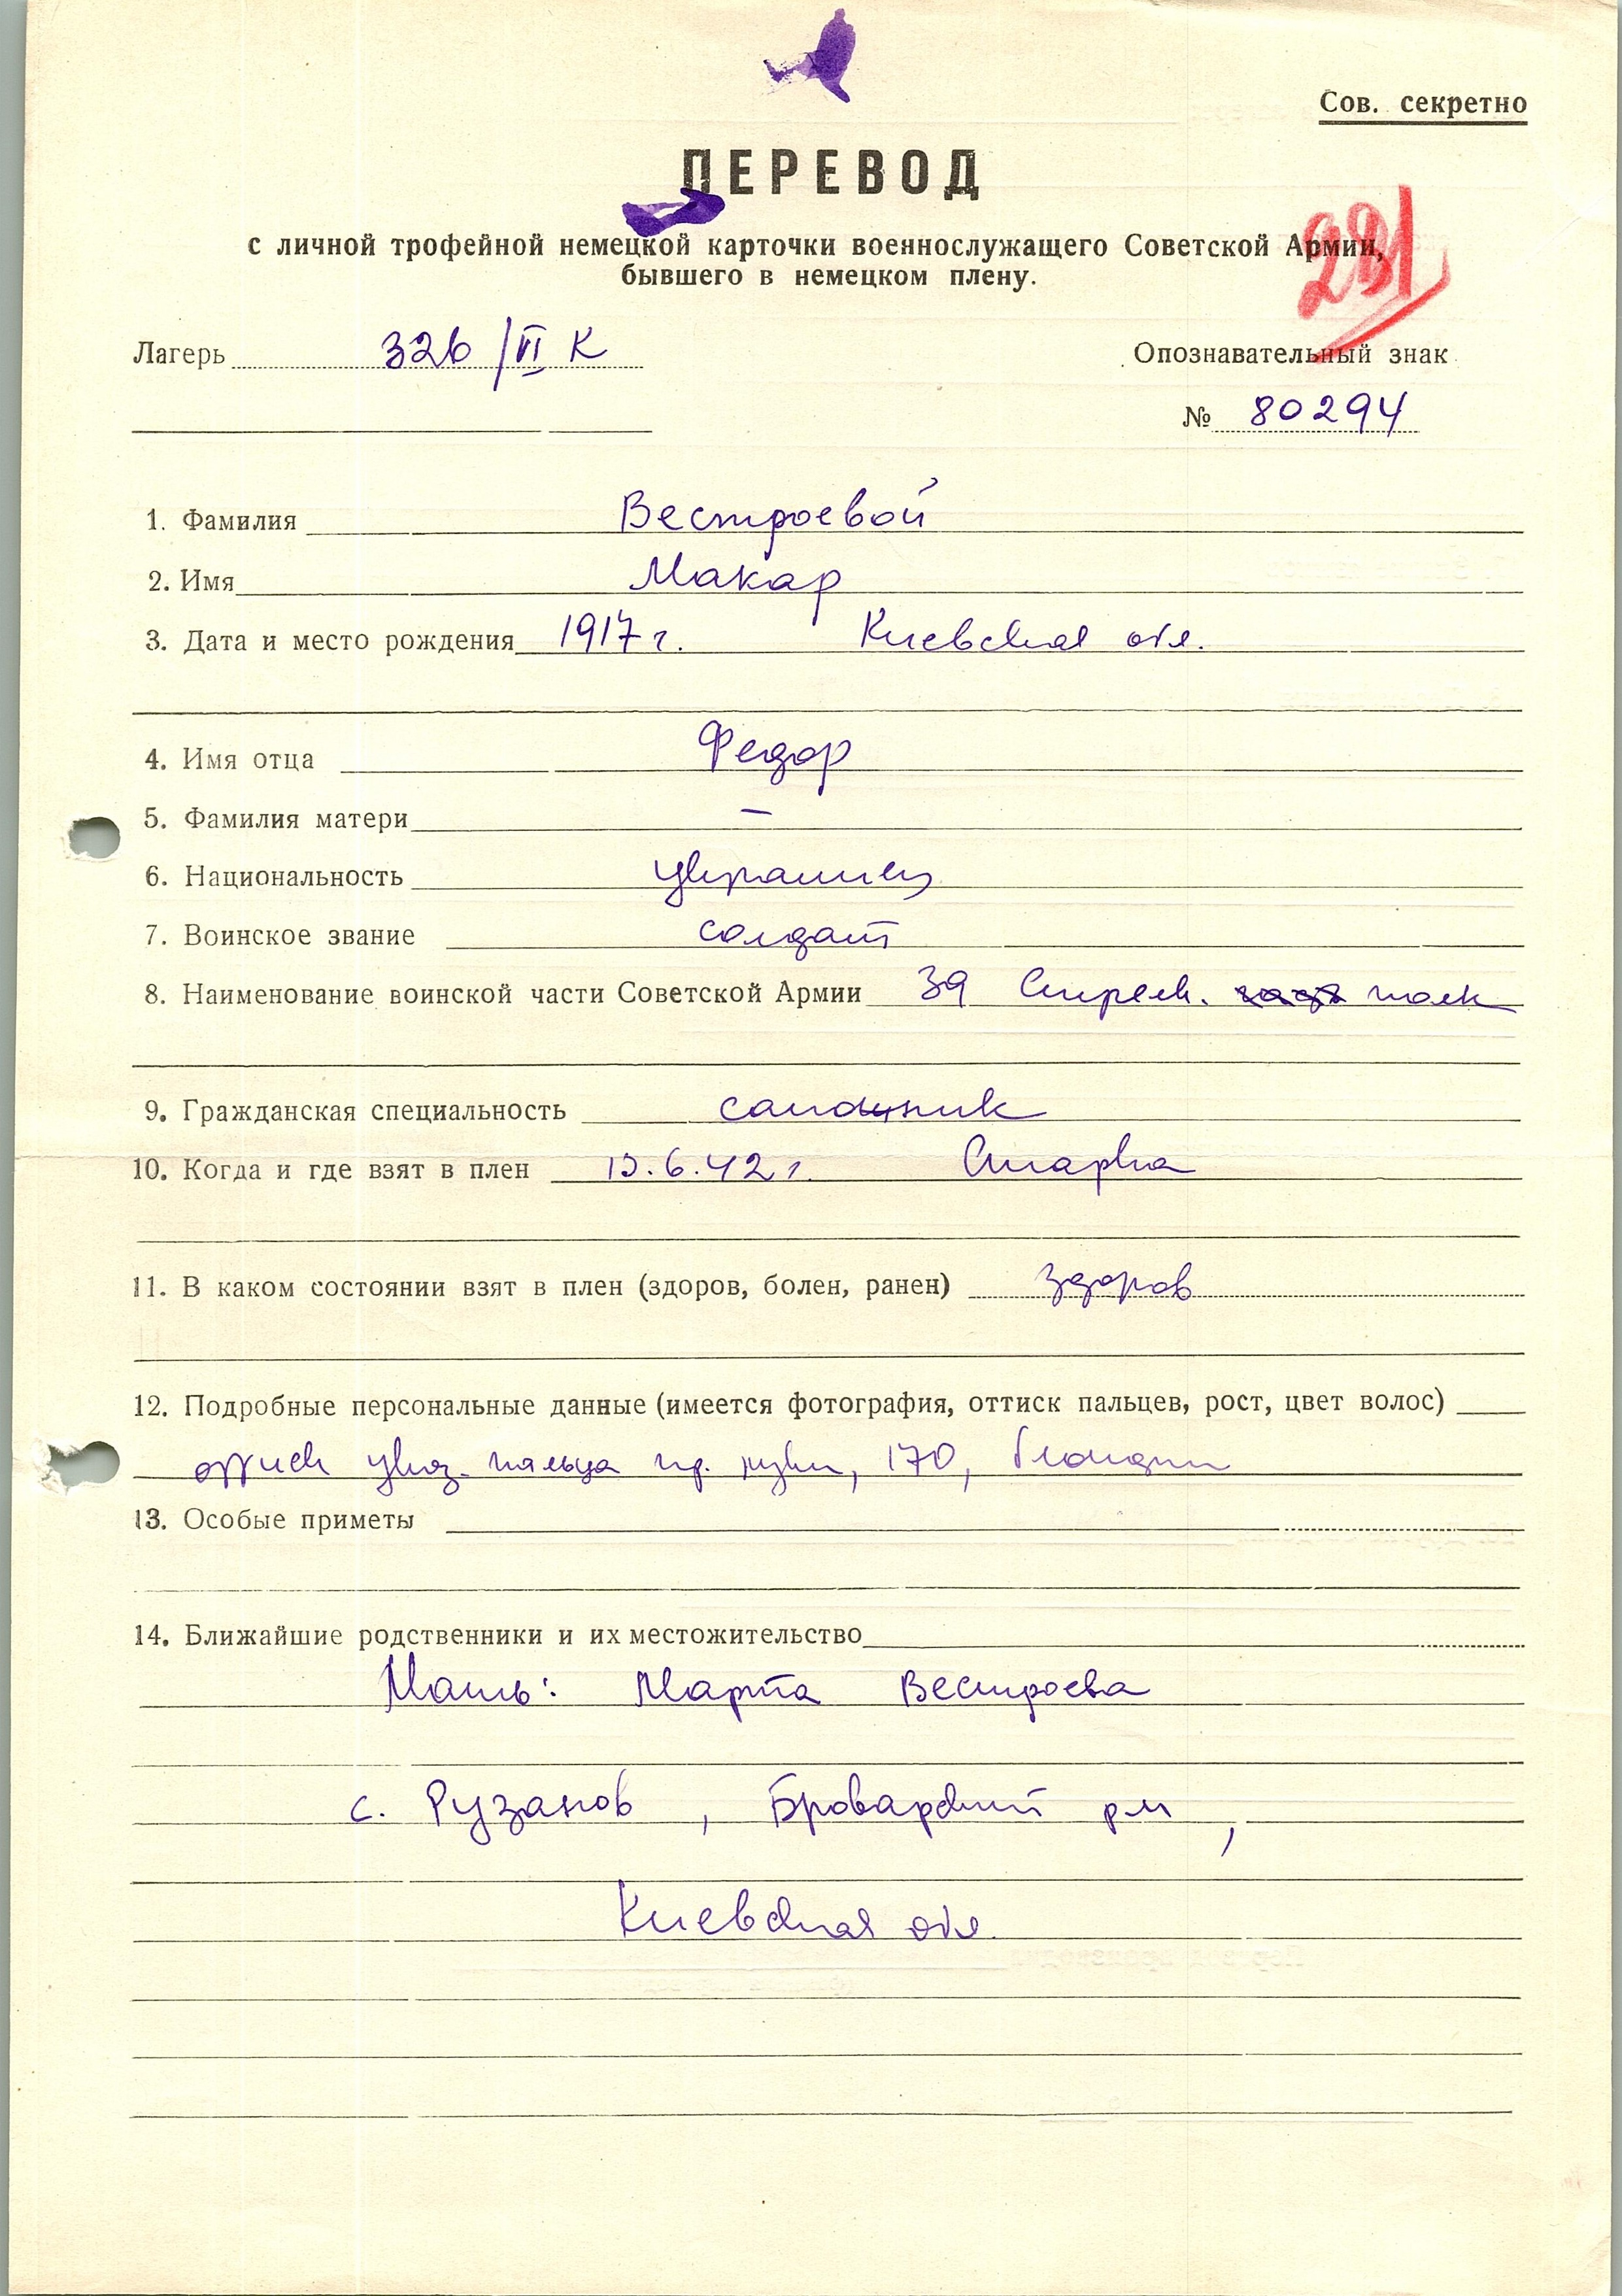 Сов. секретно
ПЕРЕВОД
с личной трофейной немецкой карточки военнослужащего Советской Армии,
бывшего в немецком плену.
281
Лагерь 326/VI К
Опознавательный знак
№ 80294
1. Фамилия Вестроевой
2. Имя Макар
3. Дата и место рождения 1917 г. Киевская обл.
4. Имя отца Федор
5. Фамилия матери —
6. Национальность украинец
7. Воинское звание солдат
8. Наименование воинской части Советской Армии 39 Стрелк. полк
9. Гражданская специальность
10. Когда и где взят в плен .6.42 г.
11. В каком состоянии взят в плен (здоров, болен, ранен) здоров
12. Подробные персональные данные (имеется фотография, оттиск пальцев, рост, цвет волос)
оттиск указ. пальца пр. руки, 170, блондин
13. Особые приметы
14. Ближайшие родственники и их местожительство
Мать: Марта Вестроева
с. Рузанов, Броварский р-н,
Киевская обл.